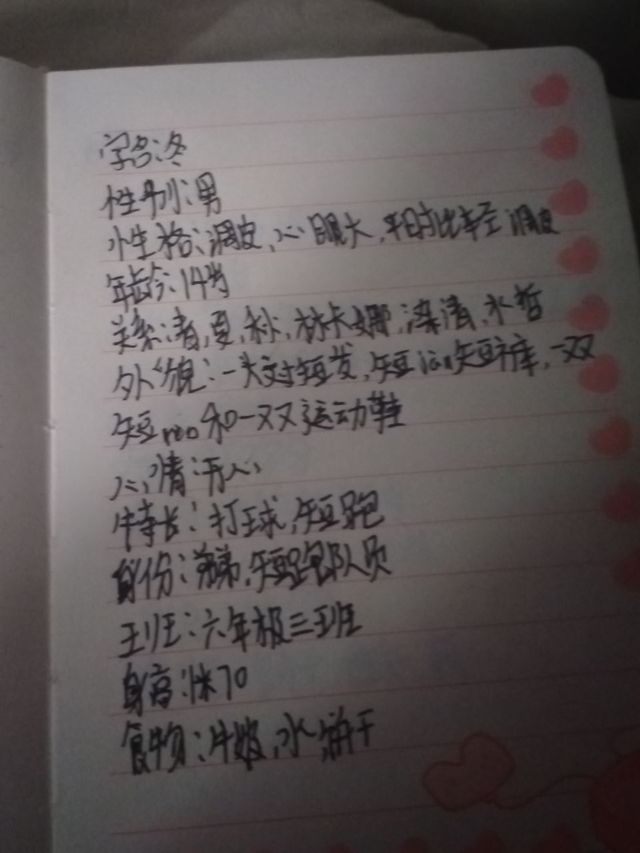 字名:冬
性别:男
性格:调皮,心眼大,平时比车至调皮
年龄:14岁
关系:春,夏,秋,林卡娜,清,水哲
外貌:一头短发,短 短裤,一双
短 和一双运动鞋
心情:开心
特长:打球,短跑
身份:弟弟,短跑队员
王班:六年级三班
身高:1米70
食物:牛奶,水,饼干